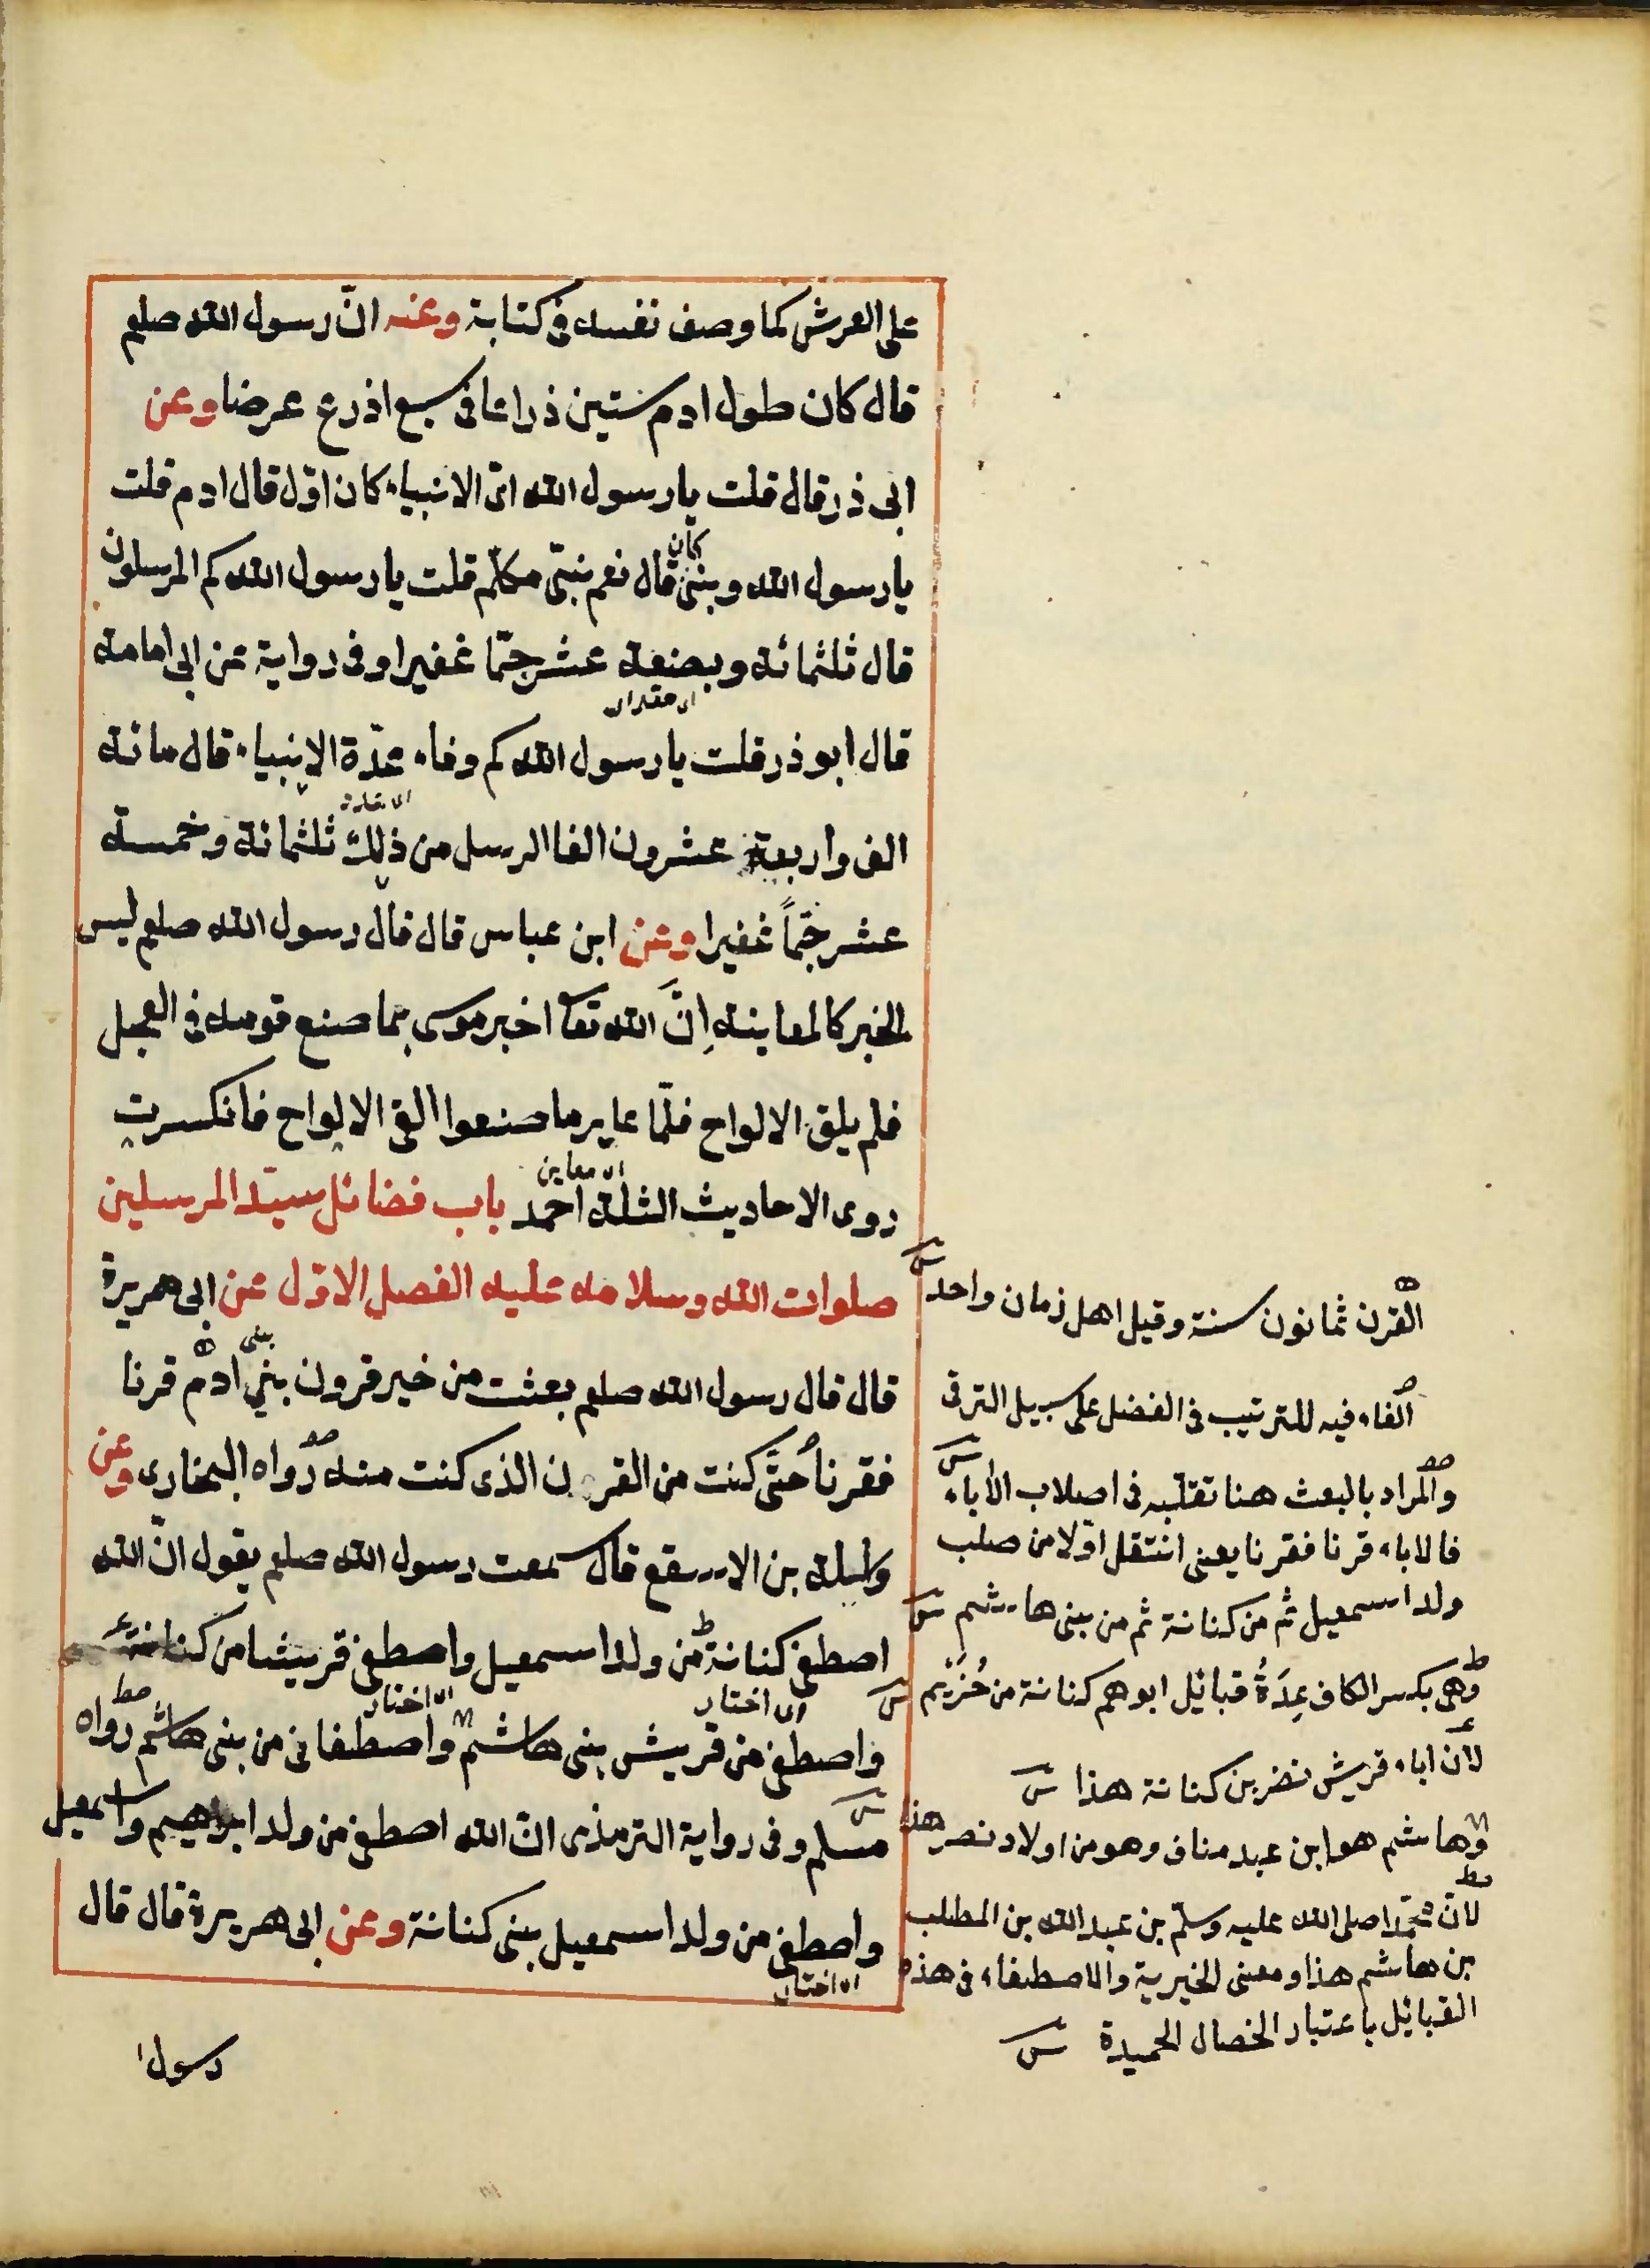 على العرش كما وصف نفسه فى كتابة وعنه انّ رسول الله صلعم
قال كان طول ادم ستين ذراعا فى سبع اذرع عرضا وعن
ابى ذر قال قلت يا رسول الله اىّ الانبياء كان اوّل قال ادم قلت
كان
يا رسول الله ونبىّ قال نعم نبىّ مكلّم قلت يا رسول الله كم المرسلون
قال ثلثمائه وبضعة عشر جمّا غفيرا وفى رواية عن ابى امامه
اى مقدار
قال ابو ذر قلت يا رسول الله كم وفاء عدّة الانبياء قال مائه
الف واربعة عشرون الفا الرسل من ذلك ثلثمائة وخمسة
عشر جمّاً غفيرا وعن ابن عباس قال قال رسول الله صلعم ليس
الخبر كالمعاينه اِنَّ الله تعا اخبر موسى بما صنع قومه فى العجل
فلم يلق الالواح فلمّا عاين ما صنعوا القى الالواح فانكسرت
روى الاحاديث الثلثة احمد باب فضائل سيّد المرسلين
صلوات الله وسلامه عليه الفصل الاوّل عن ابى هريرة
قال قال رسول الله صلعم بعثت من خير قرون بنى ادم قرنا
فقرنا حتّى كنت من القرن الذى كنت منه رواه البخارى وعن
واثلة بن الاسقع قال سمعت رسول الله صلعم يقول انّ الله
اصطفى كنانة من ولد اسمعيل واصطفى قريشا من كنانة
اى اختار اى اختار
واصطفى من قريش بنى هاشم واصطفانى من بنى هاشم رواه
مسلم وفى رواية الترمذى انّ الله اصطفى من ولد ابراهيم واسمعيل
واصطفى من ولد اسمعيل بنى كنانة وعن ابى هريرة قال قال
اى اختار
رسول ا
القرن ثمانون سنة وقيل اهل زمان واحد
الفاء فيه للترتيب فى الفضل على سبيل الترقى
والمراد بالبعث هنا تقلّبه فى اصلاب الأباء
فالاباء قرنا فقرنا يعنى انتقل اوّلا من صلب
ولد اسمعيل ثم من كنانة ثم من بنى هاشم
وهى بكسر الكاف عِدَةُ قبائل ابوهم كنانة من خُزَيم
لان اباء قريش نضر بن كنانة هذا
وهاشم هو ابن عبد مناف وهو من اولاد نصر هذا
لانّ محمّدا صلى الله عليه وسلّم بن عبد الله بن المطلب
بن هاشم هذا ومعنى الخيرية والاصطفاء فى هذه
القبائل باعتبار الخصال الحميدة